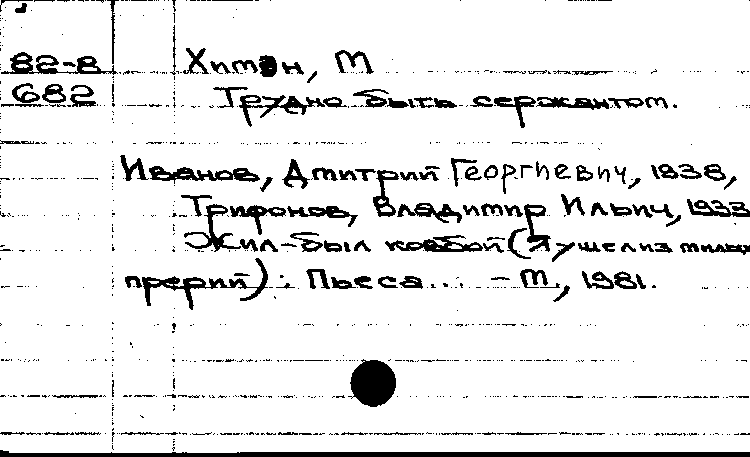 82-8 Химэн, М
682 Трудно быть сержантом.
Иванов, Дмитрий Георгиевич, 1938,
Трифонов, Владимир Ильич, 1933
Жил-был ковбой (Я ушел из милых
прерий): Пьеса... - М., 1981.